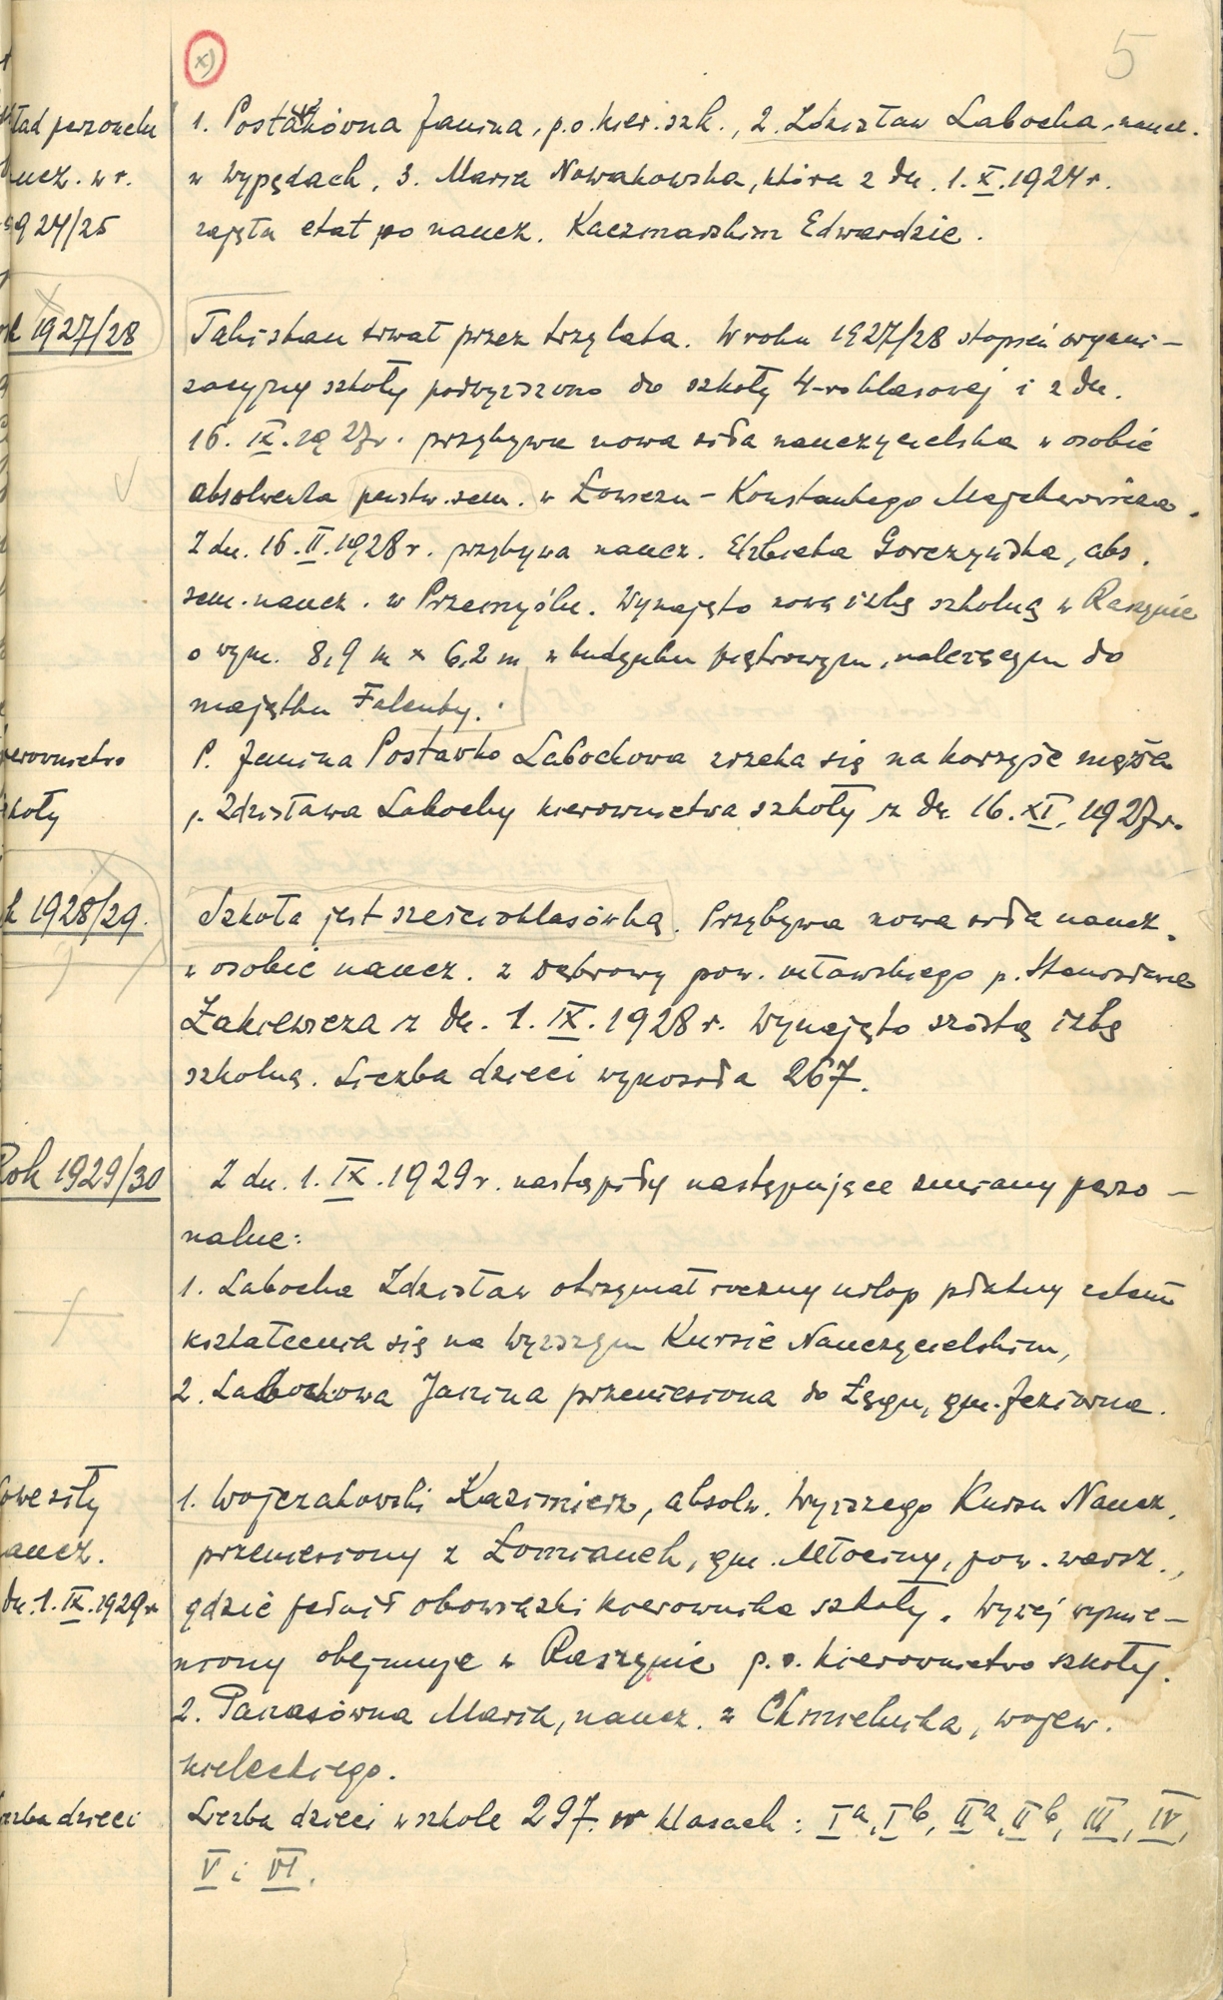 x)
5
1. Postawkówna Janina, p.o. kier. szk., 2. Zdzisław Labocha, naucz.
w Wypędach, 3. Maria Nowakowska, która z dn. 1.X.1924 r.
zajęła etat po naucz. Kaczmarskim Edwardzie.
personelu
ucz. w r.
1924/25
k 1927/28
Taki stan trwał przez trzy lata. W roku 1927/28 stopień organi-
zacyjny szkoły podwyższono do szkoły 4-roklasowej i z dn.
16. IX. 1927 r. przybywa nowa siła nauczycielska w osobie
absolwenta państw. sem. w Łowiczu - Konstantego Majchrowicza.
Z dn. 16. II. 1928 r. przybywa naucz. Elżbieta Gorczyńska, abs.
sem. naucz. w Przemyślu. Wynajęto nową izbę szkolną w Raszynie
o wym. 8,9 m x 6,2 m w budynku piętrowym, należącym do
majątku Falenty.
erownictwo
koły
P. Janina Postawko Labochowa zrzeka się na korzyść męża
p. Zdzisława Labochy kierownictwa szkoły z dn. 16. XI. 1927 r.
k 1928/29.
Szkoła jest sześcioklasówką. Przybywa nowa siła naucz.
w osobie naucz. z Dąbrowy pow. mławskiego p. Stanisława
Żakiewicza z dn. 1. IX. 1928 r. Wynajęto szóstą izbę
szkolną. Liczba dzieci wynosiła 267.
Rok 1929/30
Z dn. 1. IX. 1929 r. nastąpiły następujące zmiany perso-
nalne:
1. Labocha Zdzisław otrzymał roczny urlop płatny celem
kształcenia się na Wyższym Kursie Nauczycielskim,
2. Labochowa Janina przeniesiona do Łęgu, gm. Jeziorna.
owe siły
aucz.
dn. 1. IX. 1929 r.
1. Wojczakowski Kazimierz, absolw. Wyższego Kursu Naucz.
przeniesiony z Łomianek, gm. Młociny, pow. warsz.,
gdzie pełnił obowiązki kierownika szkoły. Wyżej wymie-
niony obejmuje w Raszynie p. o. kierownictwo szkoły.
2. Panasówna Maria, naucz. z Chmielnika, wojew.
kieleckiego.
iczba dzieci
Liczba dzieci w szkole 297 w klasach: Ia, Ib, IIa, IIb, III, IV,
V i VI.